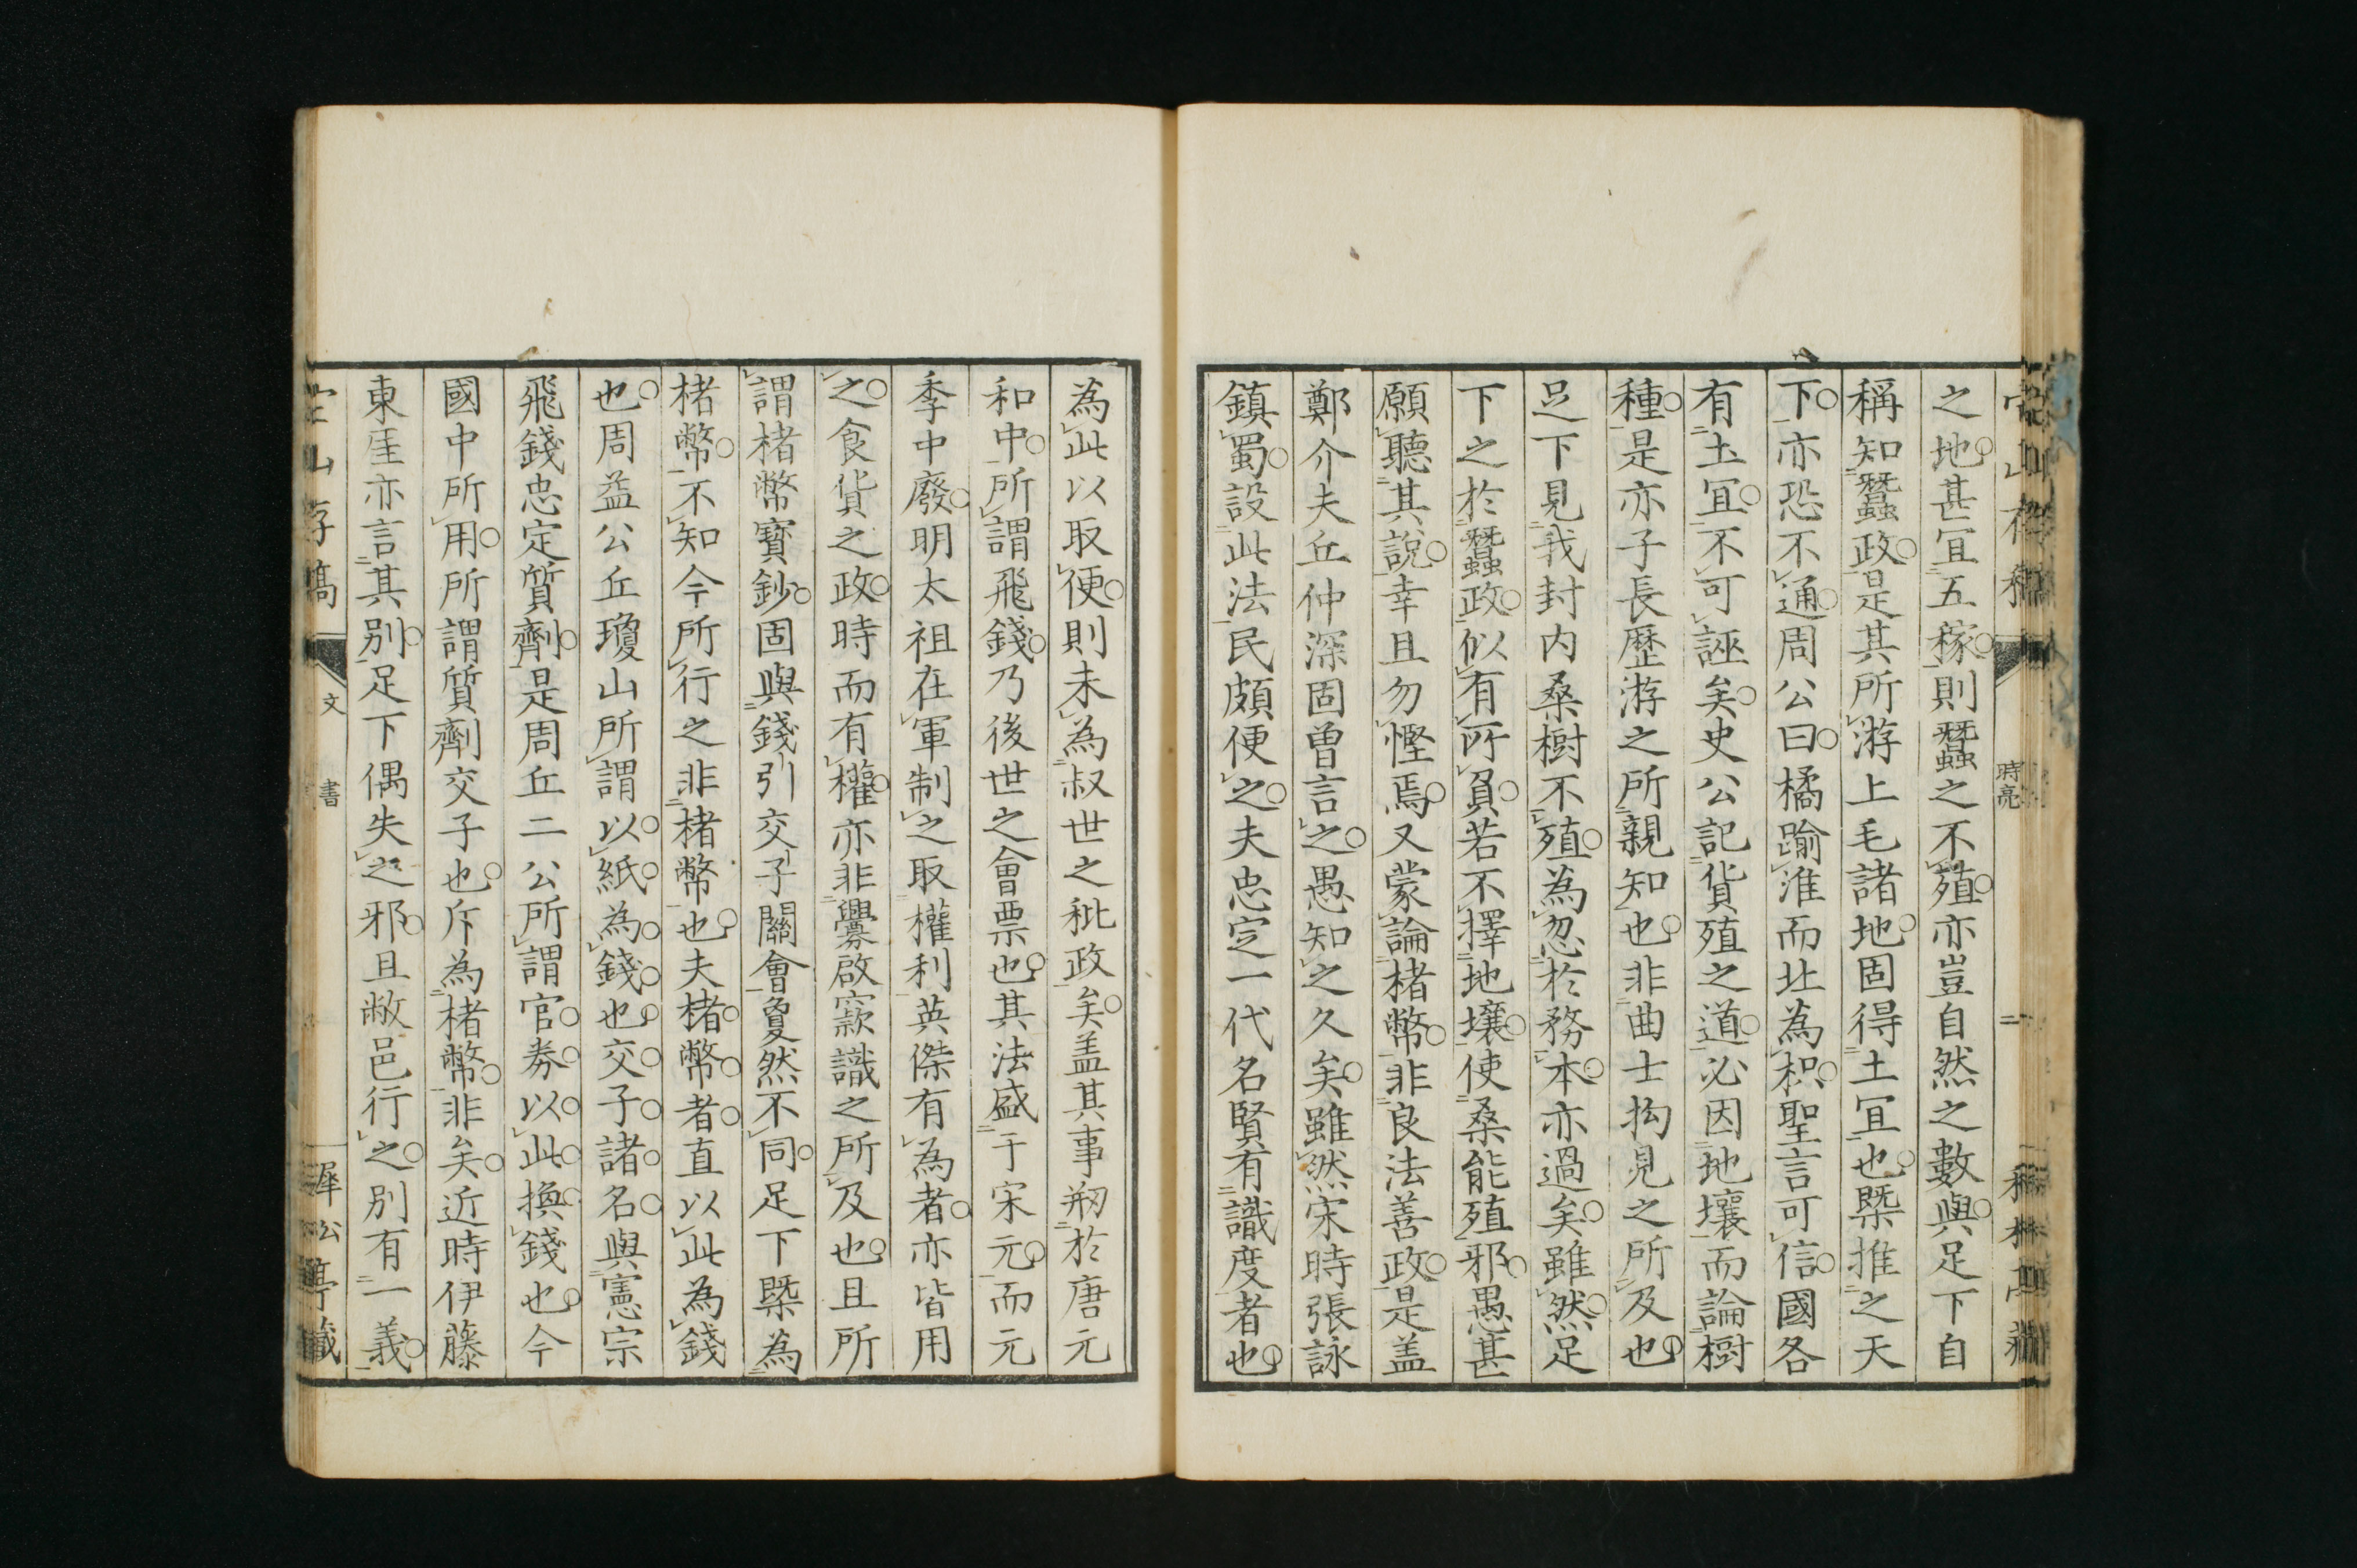 之地甚宜五稼則蠶之不殖亦豈自然之數與足下自
稱知蠶政是其所游上毛諸地固得土宜也槩推之天
下亦恐不通周公曰橘踰淮而北為枳聖言可信國各
有土宜不可誣矣史公記貨殖之道必因地壤而論樹
種是亦子長歷游之所親知也非曲士拘見之所及也
足下見我封内桑樹不殖為忽於務本亦過矣雖然足
下之於蠶政似有所負若不擇地壤使桑能殖邪愚甚
願聽其說幸且勿慳焉又蒙論楮幣非良法善政是盖
鄭介夫丘仲深固曾言之愚知之久矣雖然宋時張詠
鎮蜀設此法民頗便之夫忠定一代名賢有識度者也
時亮
二
為此以取便則未為叔世之秕政矣盖其事剏於唐元
和中所謂飛錢乃後世之會票也其法盛于宋元而元
季中廢明太祖在軍制之取權利英傑有為者亦皆用
之食貨之政時而有權亦非釁啟窾識之所及也且所
謂楮幣寶鈔固與錢引交子關會夐然不同足下槩為
楮幣不知今所行之非楮幣也夫楮幣者直以此為錢
也周益公丘瓊山所謂以紙為錢也交子諸名與憲宗
飛錢忠定質劑是周丘二公所謂官券以此換錢也今
國中所用所謂質劑交子也斥為楮幣非矣近時伊藤
東厓亦言其別足下偶失之邪且敝邑行之別有一義
文
書